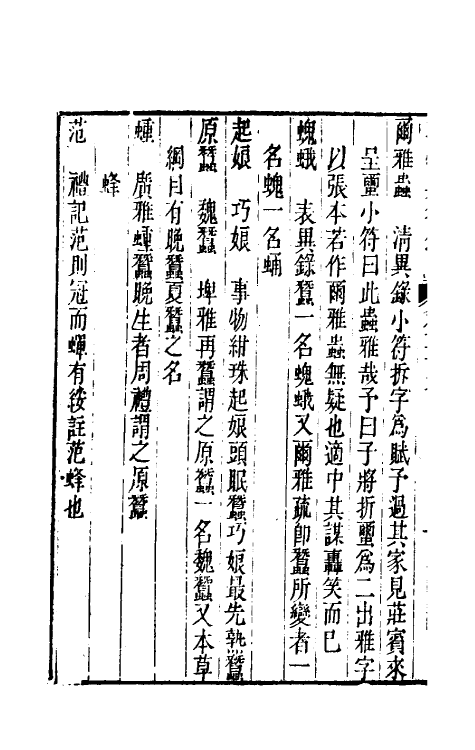 爾雅蟲　清異錄小符拆字為賦予過其家見莊賓來
呈蠒小符曰此蟲雅哉予曰子將折蠒為二出雅字
以張本若作爾雅蟲無疑也適中其謀轟笑而已
螝蛾　表異錄蠶一名螝蛾又爾雅疏卽蠶所變者一
名螝一名蛹
起娘　巧娘　事物紺珠起娘頭眠蠶巧娘最先熟蠶
原蠶　魏蠶　埤雅再蠶謂之原蠶一名魏蠶又本草
綱目有晚蠶夏蠶之名
䗰　廣雅䗰蠶晚生者周禮謂之原蠶
蜂
范　禮記范則冠而蟬有緌註范蜂也